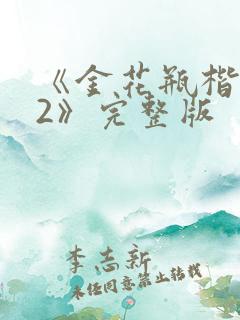 《金花瓶楷
2》完整版
李志新
未经同意禁止转载